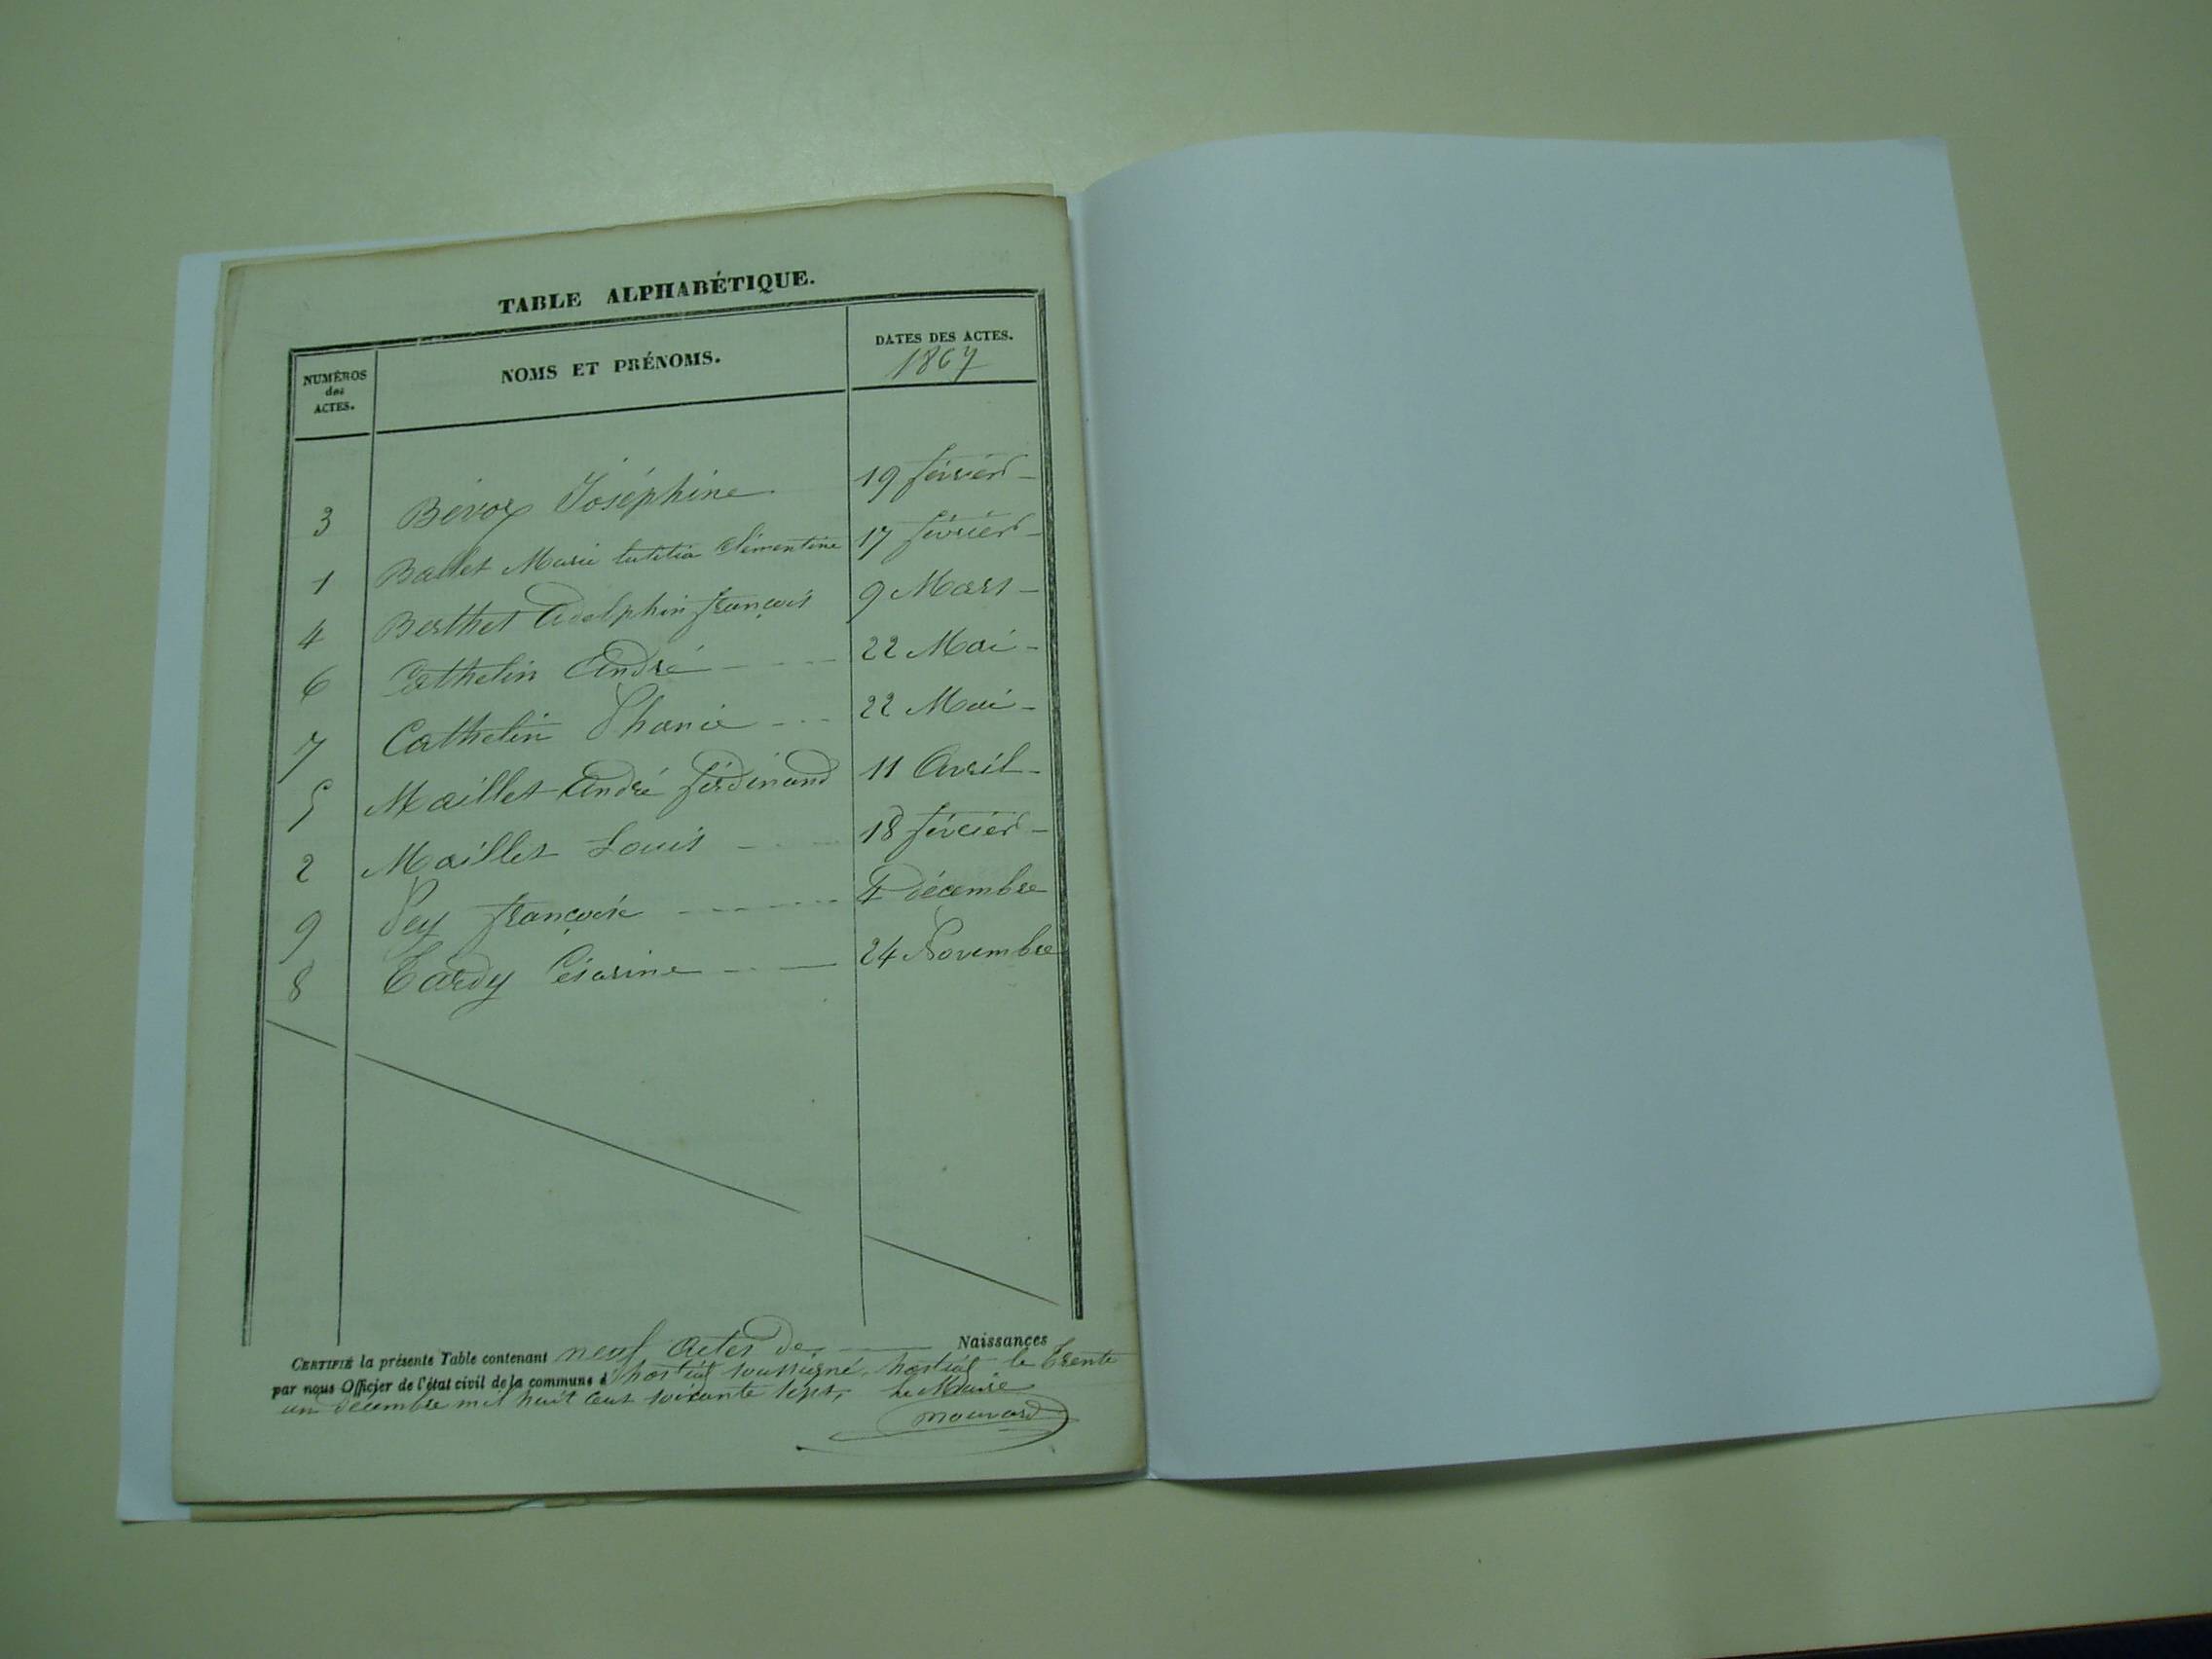 TABLE ALPHABÉTIQUE.
NUMÉROS
des
ACTES.
NOMS ET PRÉNOMS.
DATES DES ACTES.
1867
3 Bevoz Joséphine 19 février
1 Ballet Marie Clémentine 17 février
4 Berthet Adolphin françois 9 Mars
6 Cathelin André 22 Mai
7 Cathelin Phanie 22 Mai
5 Maillet André ferdinand 11 Avril
2 Maillet Louis 18 février
9 Pey françoise 4 décembre
8 Tardy Césarine 24 Novembre
CERTIFIÉ la présente Table contenant neuf actes de Naissances
par nous Officier de l'état civil de la commune d'hostiaz soussigné, hostiaz le trente
un décembre mil huit cent soixante sept, le Maire